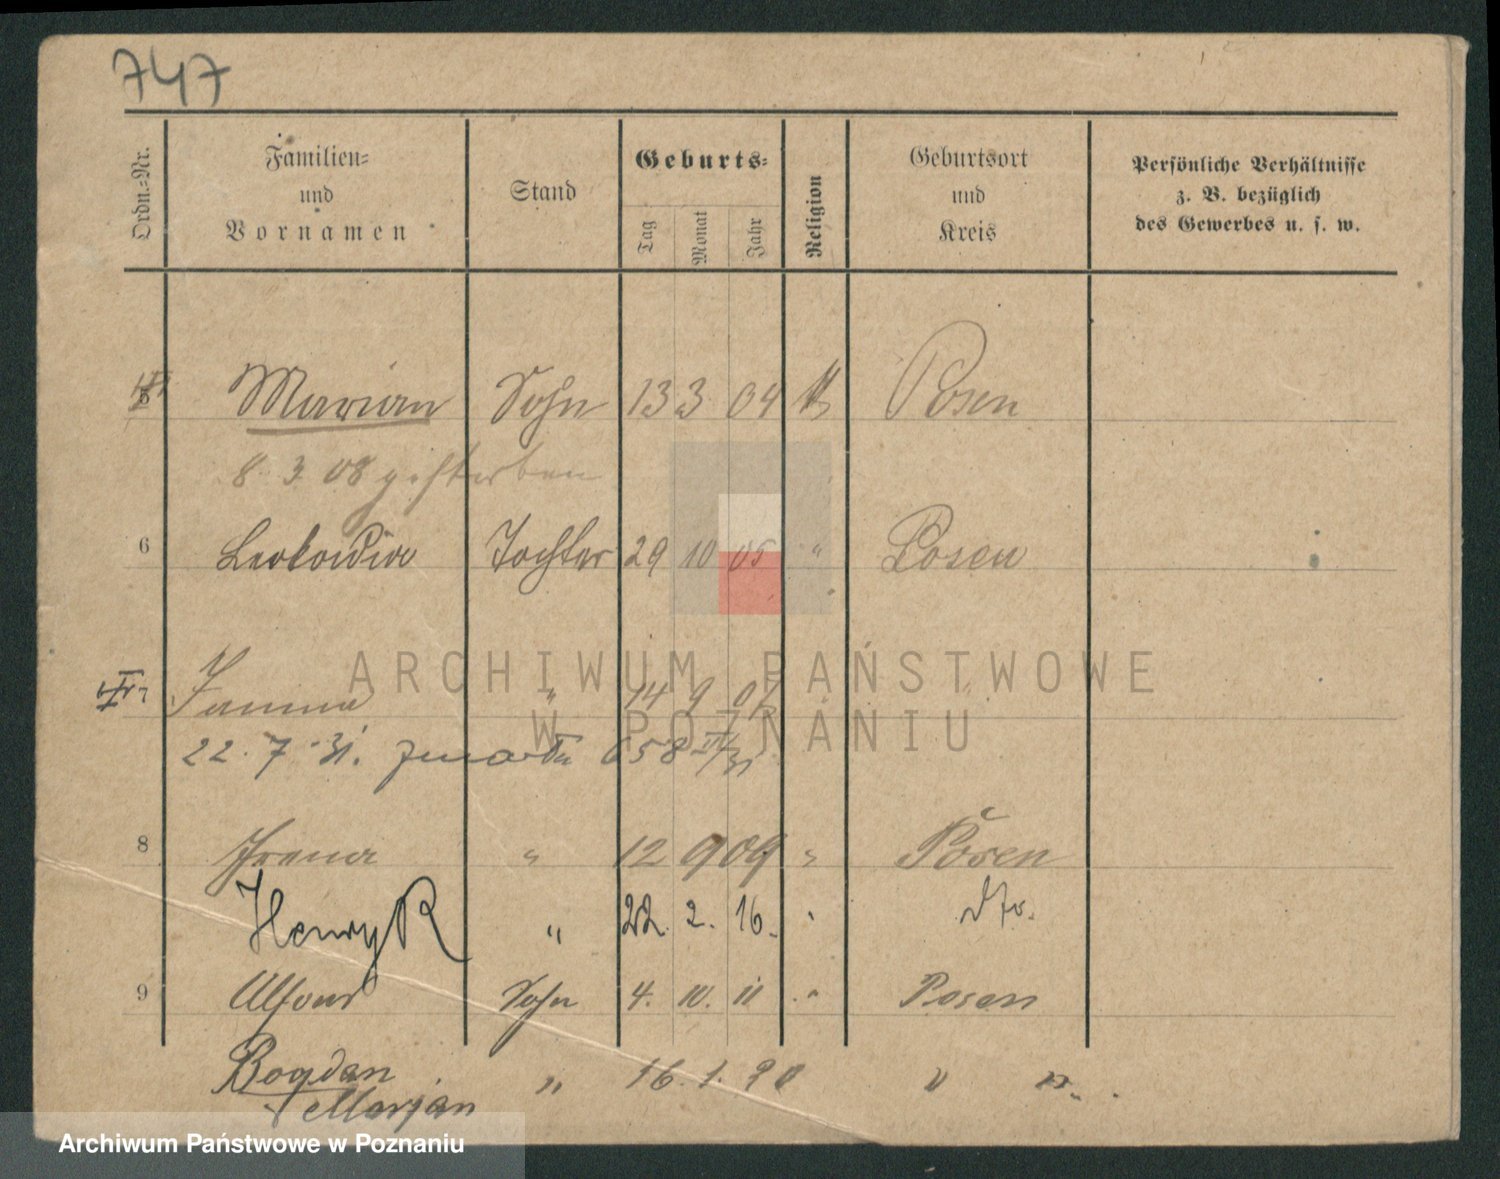 747
Ordn.=Nr.
Familien=
und
Vornamen
Stand
Geburts=
Tag
Monat
Jahr
Religion
Geburtsort
und
Kreis
Persönliche Verhältnisse
z. B. bezüglich
des Gewerbes u. s. w.
5 Marian Sohn 13 3 04 Posen
8. 3. 08 gestorben
6 Leokadia Tochter 29 10 05 " Posen
7 Janina " 14 9 07
22. 7. 31. 658
8 Irena " 12 9 09 " Posen
Henryk " 22. 2. 16. " dto.
9 Alfons Sohn 4. 10. 11 " Posen
Bogdan " 16. 1. 20 " "
Marjan
ARCHIWUM PAŃSTWOWE
W POZNANIU
Archiwum Państwowe w Poznaniu